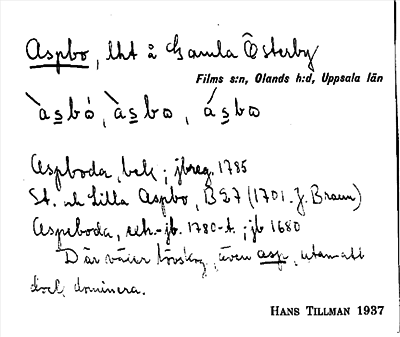 Aspbo, lht å Gamla Österby
Films s:n, Olands h:d, Uppsala län
`as̱bó, `as̱bo, ´as̱bo
Aspboda, bek.; jbreg. 1785
St. och Lilla Aspbo, B27 (1701. J. Braun)
Aspeboda, eck.-jb. 1780-t.; jb 1680
Där växer lövskog, även asp, utan att
dock dominera.
HANS TILLMAN 1937